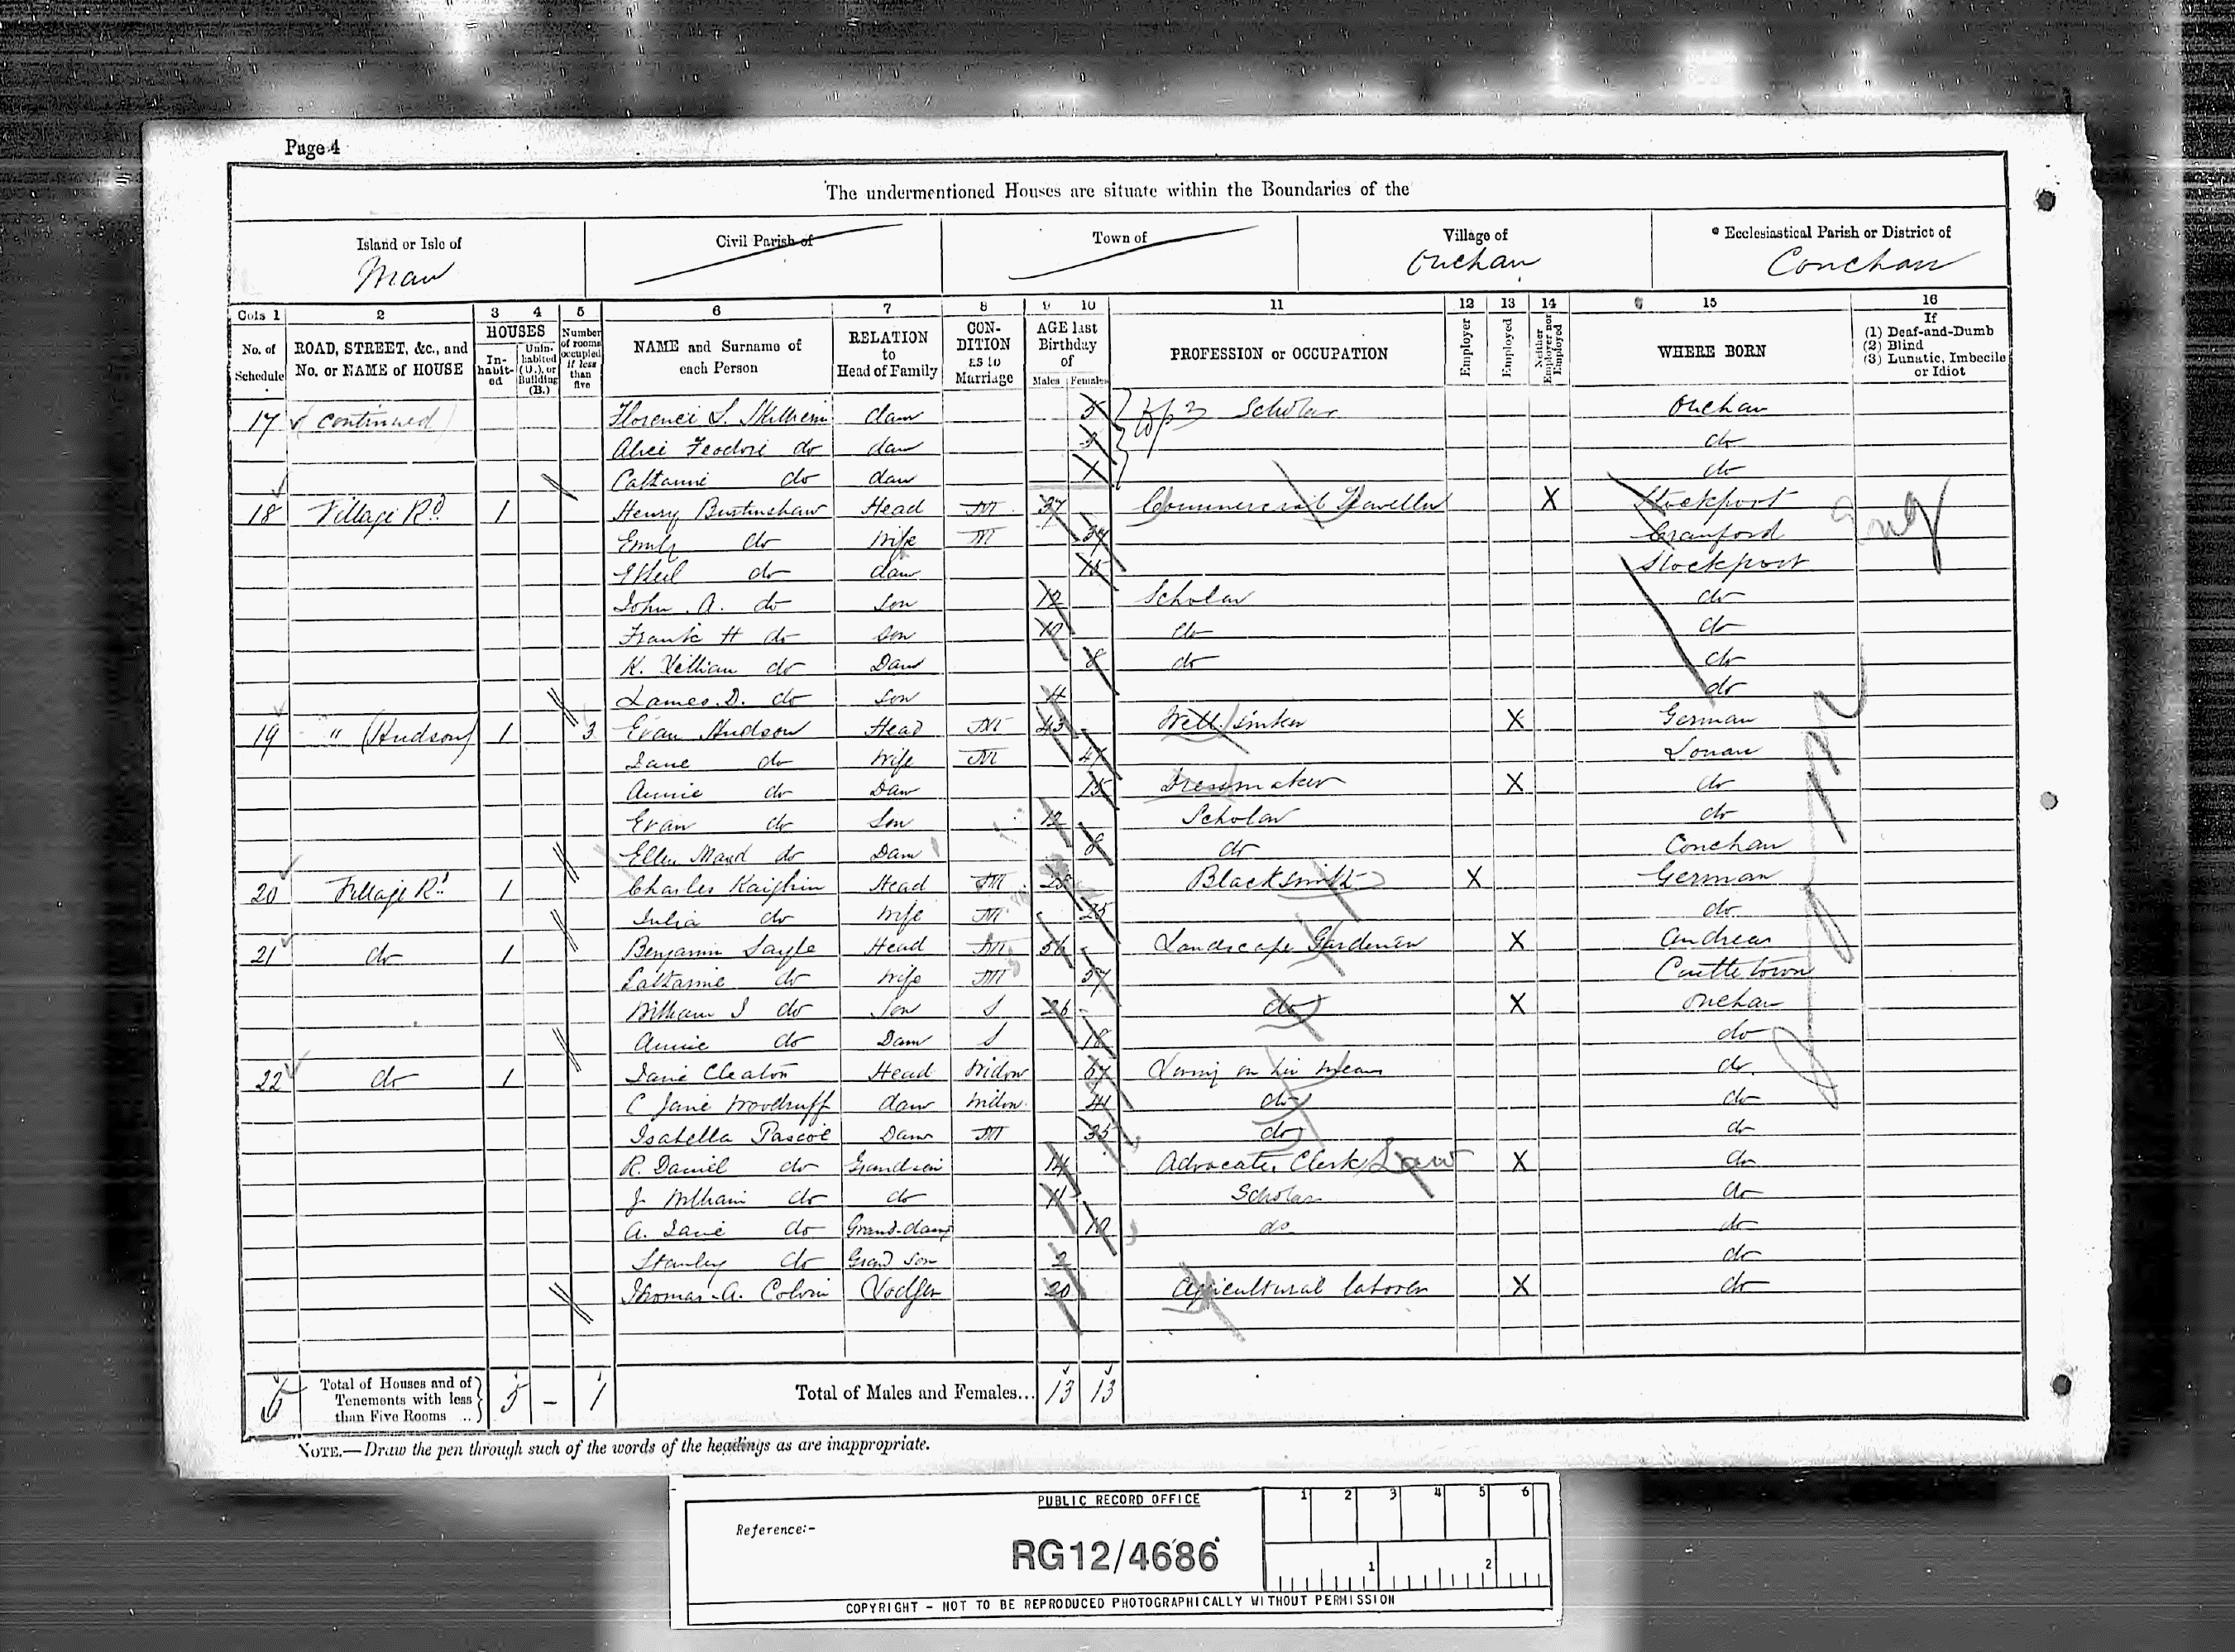 Page 4
The undermentioned Houses are situate within the Boundaries of the
Island or Isle of Man
Civil Parish of
Town of
Village of Onchan
Ecclesiastical Parish or District of Conchan
Cols 1 2 3 4 5 6 7 8 9 10 11 12 13 14 15 16
No. of Schedule
ROAD, STREET, &c., and No. or NAME of HOUSE
HOUSES
In-habit-ed
Unin-habited (U.), or Building (B.)
Number of rooms occupied if less than five
NAME and Surname of each Person
RELATION to Head of Family
CON-DITION as to Marriage
AGE last Birthday of
Males Females
PROFESSION or OCCUPATION
Employer
Employed
Neither Employer nor Employed
WHERE BORN
If
(1) Deaf-and-Dumb
(2) Blind
(3) Lunatic, Imbecile or Idiot
17 (continued) Florence L. daw 5 Scholar Onchan
Alice Feodore do daw do
Catharine do daw 1 do
18 Village Rd 1 Henry Head M 37 Commercial Traveller X Stockport
Emily do Wife M 37 Cranford
Ethel do daw 15 Stockport
John. A. do Son 12 Scholar do
Frank H do Son 10 do do
K. Lillian do Daw 8 do do
James. D. do Son 4 do
Eng
19 " (Hudson) 1 3 Evan Hudson Head M 43 Well sinker X German
Jane do Wife M 41 Lonan
Annie do Daw 15 Dressmaker X do
Evan do Son 12 Scholar do
Ellen Maud do Daw 8 do Conchan
20 Village Rd 1 Charles Kaighin Head M 28 Blacksmith X German
Julia do Wife M 25 do
21 do 1 Benjamin Sayle Head M 56 Landscape Gardener X Andreas
Catharine do Wife M 57 Castletown
William J do Son S 26 do X Onchan
Annie do Daw S 18 do
22 do 1 Jane Cleator Head Widow 67 Living on her means do
C Jane Woodruff daw Widow 41 do do
Isabella Pascoe Daw M 35 do do
R. Daniel do Grandson 14 Advocates Clerk Law X do
J. William do do 11 Scholar do
A. Jane do Grand-daw 10 do do
Stanley do Grand Son 2 do
Thomas. A. Colvin Lodger 20 Agricultural laborer X do
5 Total of Houses and of Tenements with less than Five Rooms .. 5 – 1 Total of Males and Females... 13 13
NOTE.—Draw the pen through such of the words of the headings as are inappropriate.
PUBLIC RECORD OFFICE
1 2 3 4 5 6
Reference:-
RG12/4686
1 2
COPYRIGHT - NOT TO BE REPRODUCED PHOTOGRAPHICALLY WITHOUT PERMISSION